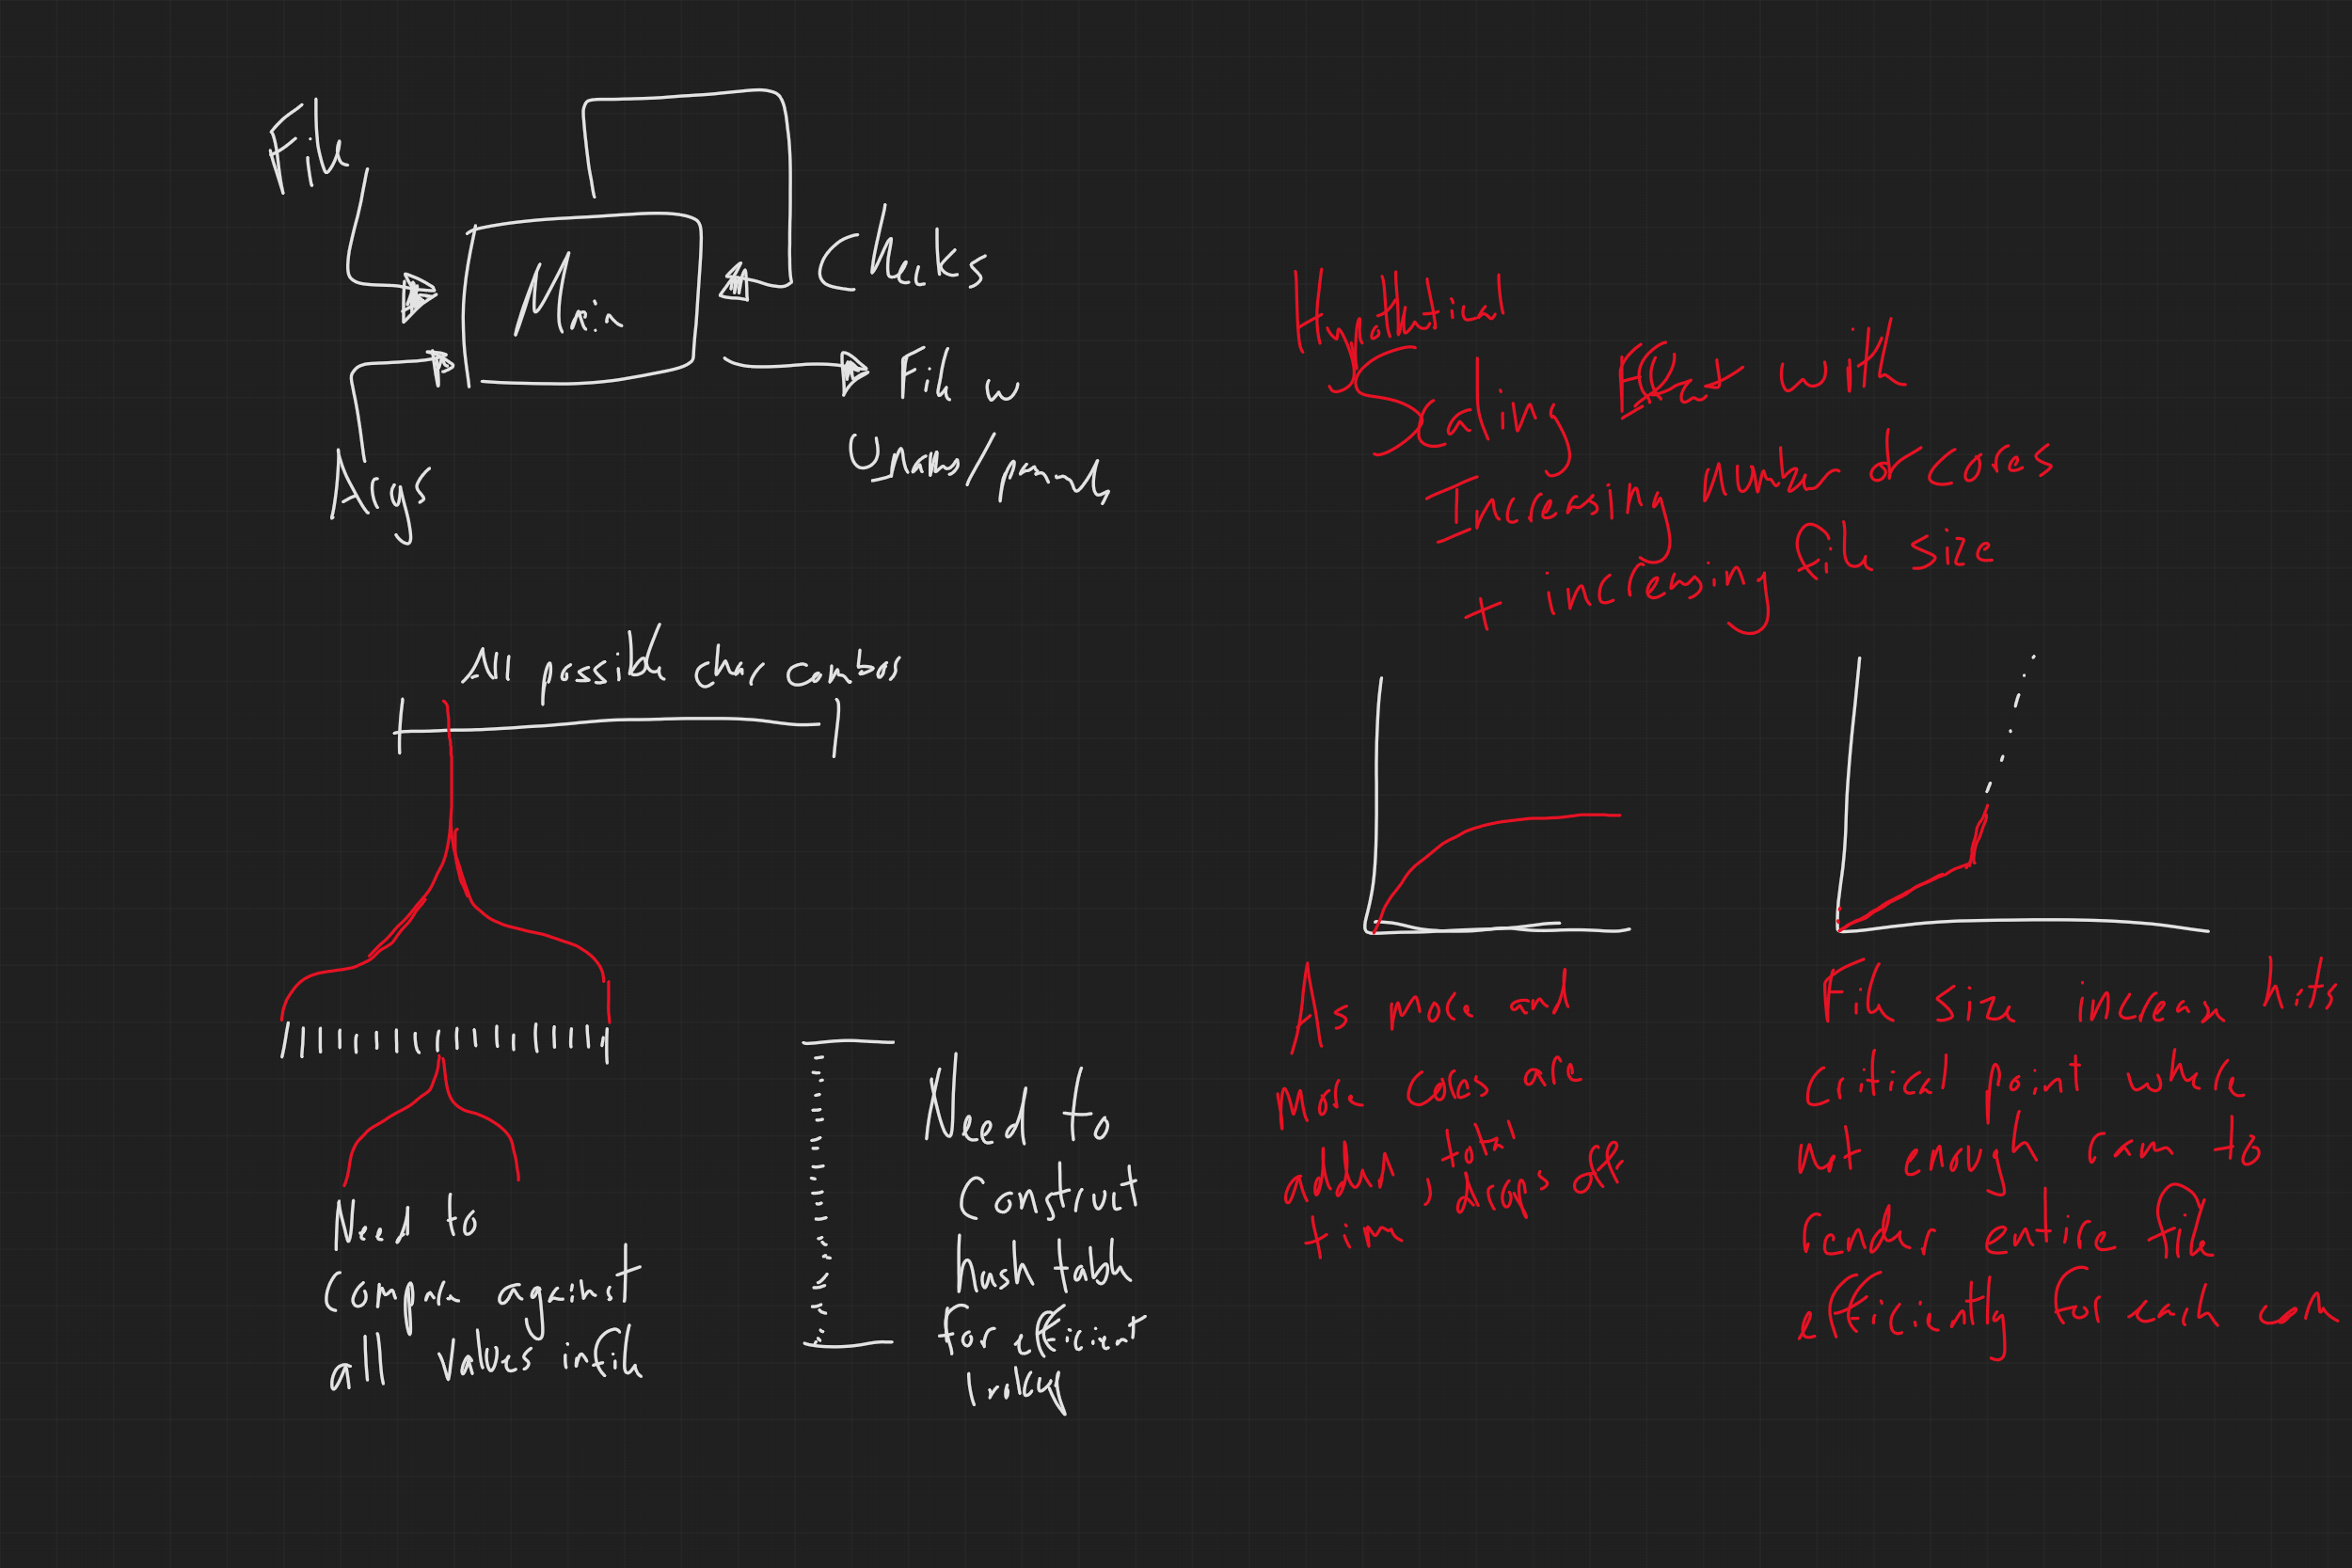 File
Main
Checks
File w
Unams/pswds
Args
All possible char combos
Need to
compare against
all values in file
Need to
Construct
hash table
for efficient
Hypothetical
Scaling Effect with
Increasing Number of cores
+ increasing file size
As more and
more cores are
added, total
time drops off
File size increase hits
critical point where
not enough ram to
render entire file
efficiently for each